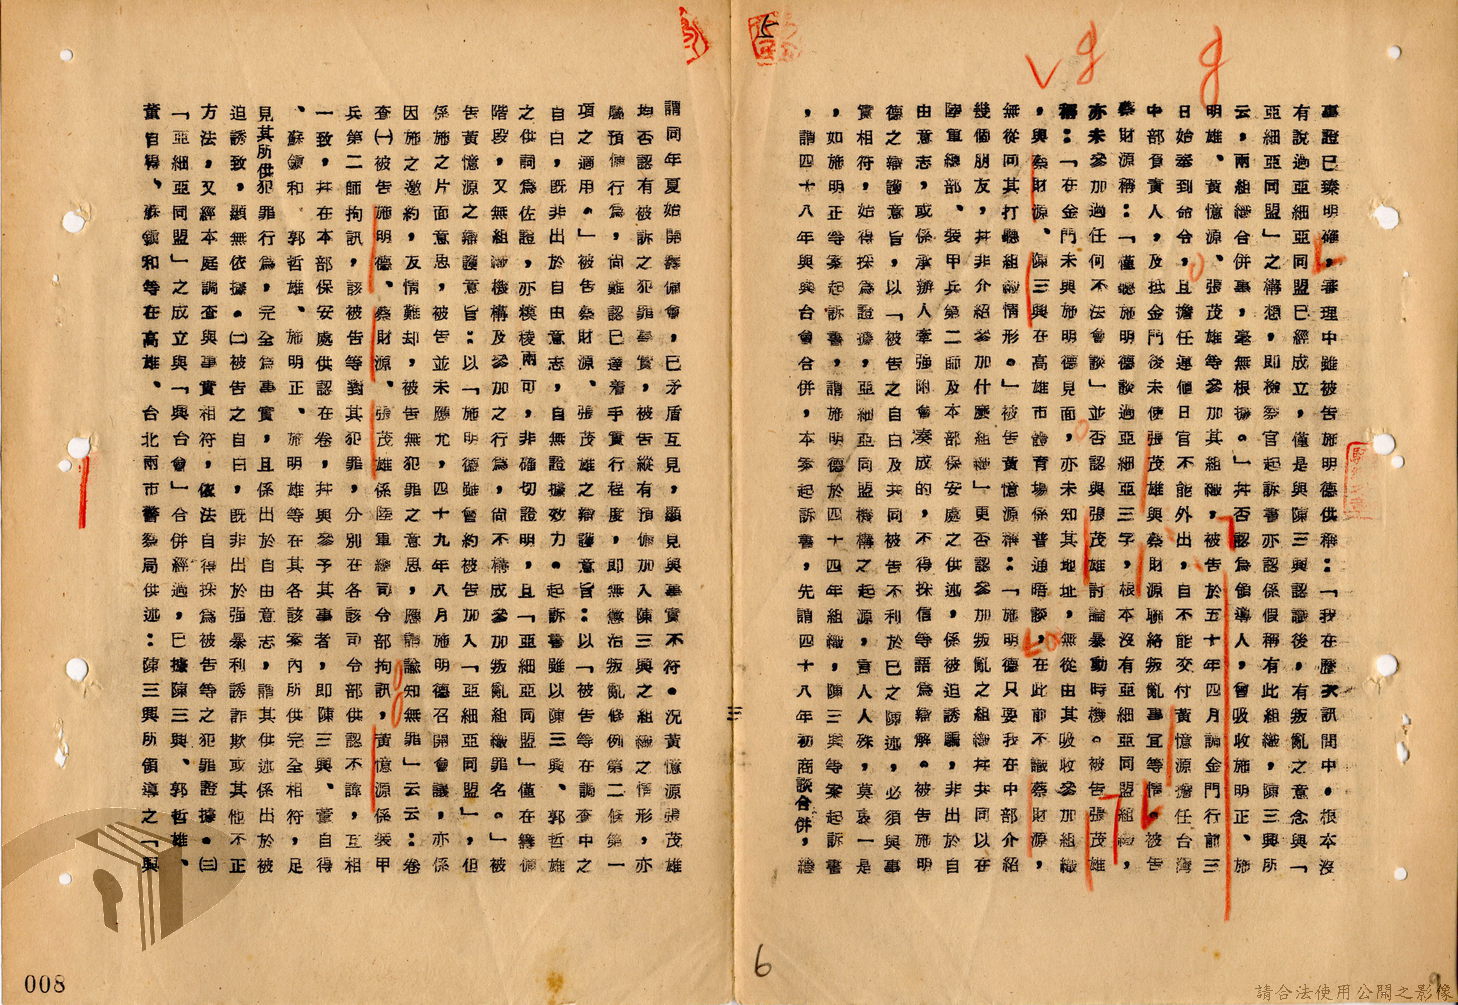 事證已臻明確，審理中雖被告施明德供稱：「我在歷次訊問中，根本沒
有說過亞細亞同盟已經成立，僅是與陳三興認識後，有叛亂之意念與「
亞細亞同盟」之構想，即檢察官起訴書亦認係假稱有此組織，陳三興所
云，兩組織合併事，毫無根據。」并否認為領導人，曾吸收施明正、施
明雄、黃憶源、張茂雄等參加其組織，被告於五十年四月調金門行前三
日始奉到命令，且擔任連值日官不能外出，自不能交付黃憶源擔任台灣
中部負責人，及抵金門後未使張茂雄與蔡財源聯絡叛亂事宜等情。被告
蔡財源稱：「僅聽施明德談過亞細亞三字，根本沒有亞細亞同盟組織，
亦未參加過任何不法會談」並否認與張茂雄討論暴動時機。被告張茂雄
稱：「在金門未與施明德見面，亦未知其地址，無從由其吸收參加組織
，與蔡財源、陳三興在高雄市體育場係普通晤談，在此前不識蔡財源，
無從向其打聽組織情形。」被告黃憶源稱：「施明德只要我在中部介紹
幾個朋友，并非介紹參加什麼組織」更否認參加叛亂之組織并共同以在
陸軍總部、裝甲兵第二師及本部保安處之供述，係被迫誘騙，非出於自
由意志，或係承辦人牽強附會湊成的，不得採信等語為辯解。被告施明
德之辯護意旨，以「被告之自白及共同被告不利於己之陳述，必須與事
實相符，始得採為證據，亞細亞同盟機構之起源，言人人殊，莫衷一是
，如施明正等案起訴書，謂施明德於四十四年組織，陳三興等案起訴書
，謂四十八年與興台會合併，本案起訴書，先謂四十八年初商談合併，繼
謂同年夏始開籌備會，已矛盾互見，顯見與事實不符。況黃憶源張茂雄
均否認有被訴之犯罪事實，被告縱有預備加入陳三興之組織之情形，亦
屬預備行為，尚難認已達着手實行程度，即無懲治叛亂條例第二條第一
項之適用。」被告蔡財源、張茂雄之辯護意旨：以「被告等在調查中之
自白，既非出於自由意志，自無證據效力。起訴書雖以陳三興、郭哲雄
之供詞為佐證，亦模稜兩可，非確切證明，且「亞細亞同盟」僅在籌備
階段，又無組織機構及參加之行為，尚不構成參加叛亂組織罪名。」被
告黃憶源之辯護意旨：以「施明德雖曾約被告加入「亞細亞同盟」，但
係施之片面意思，被告並未應允，四十九年八月施明德召開會議，亦係
因施之邀約，友情難却，被告無犯罪之意思，應請諭知無罪」云云：卷
查㈠被告施明德、蔡財源、張茂雄係陸軍總司令部拘訊，黃憶源係裝甲
兵第二師拘訊，該被告等對其犯罪，分別在各該司令部供認不諱，互相
一致，并在本部保安處供認在卷，并與參予其事者，即陳三興、董自得
、蘇鎮和、郭哲雄、施明正、施明雄等在其各該案內所供完全相符，足
見其所供犯罪行為，完全為事實，且係出於自由意志，謂其供述係出於被
迫誘致，顯無依據。㈡被告之自白，既非出於强暴利誘詐欺或其他不正
方法，又經本庭調查與事實相符，依法自得採為被告等之犯罪證據。㈢
「亞細亞同盟」之成立與「興台會」合併經過，已據陳三興、郭哲雄、
董自得、蘇鎮和等在高雄、台北兩市警察局供述：陳三興所領導之「興
三
5
6
008
9
請合法使用公開之影像